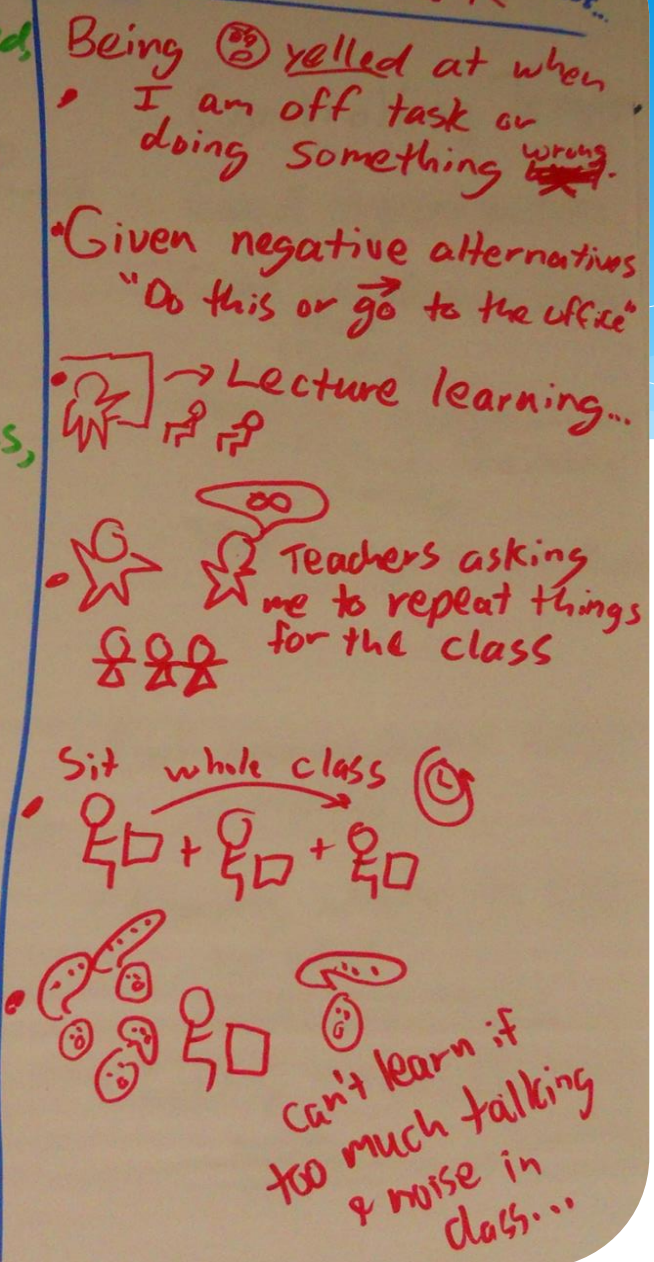 d,
Being yelled at when
I am off task or
doing something wrong.
Given negative alternatives
"Do this or go to the office"
Lecture learning...
s,
∞
Teachers asking
me to repeat things
for the class
Sit whole class
+ +
can't learn if
too much talking
& noise in
class...